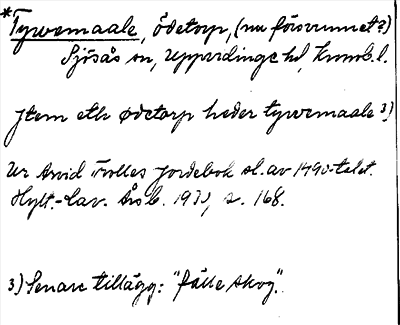 *Tywemaale, ödetorp, (nu försvunnet?)
Sjösås sn, Uppvidinge hd, Kronob. l.
Jtem eth ødetorp heder tywemaale 3)
Ur Arvid Trolles jordebok sl. av 1490-talet.
Hylt.-Cav. Årsb. 1970, s. 168.
3) Senare tillägg: "fälle skog".